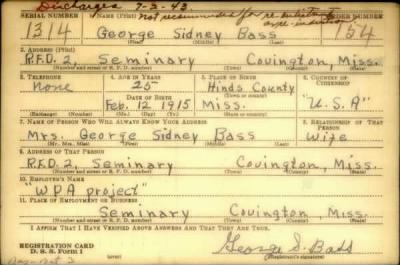 Discharged 7-2-43. not recommended for re-enlistment or re-induction
SERIAL NUMBER 1. NAME (Print) ORDER NUMBER
1314 George Sidney Bass 154
(First) (Middle) (Last)
2. ADDRESS (Print)
R.F.D. 2, Seminary Covington, Miss.
(Number and street or R. F. D. number) (Town) (County) (State)
3. TELEPHONE 4. AGE IN YEARS 5. PLACE OF BIRTH 6. COUNTRY OF CITIZENSHIP
None 25 Hinds County
DATE OF BIRTH (Town or county)
Feb. 12 1915 Miss. "U.S.A"
(Exchange) (Number) (Mo.) (Day) (Yr.) (State or country)
7. NAME OF PERSON WHO WILL ALWAYS KNOW YOUR ADDRESS 8. RELATIONSHIP OF THAT PERSON
Mrs. George Sidney Bass Wife
(Mr., Mrs., Miss) (First) (Middle) (Last)
9. ADDRESS OF THAT PERSON
R.F.D. 2, Seminary Covington, Miss.
(Number and street or R. F. D. number) (Town) (County) (State)
10. EMPLOYER'S NAME
"WPA project"
11. PLACE OF EMPLOYMENT OR BUSINESS
Seminary Covington, Miss.
(Number and street or R. F. D. number) (Town) (County) (State)
I AFFIRM THAT I HAVE VERIFIED ABOVE ANSWERS AND THAT THEY ARE TRUE.
REGISTRATION CARD
D. S. S. Form 1 (over) George S. Bass
(Registrant's signature)